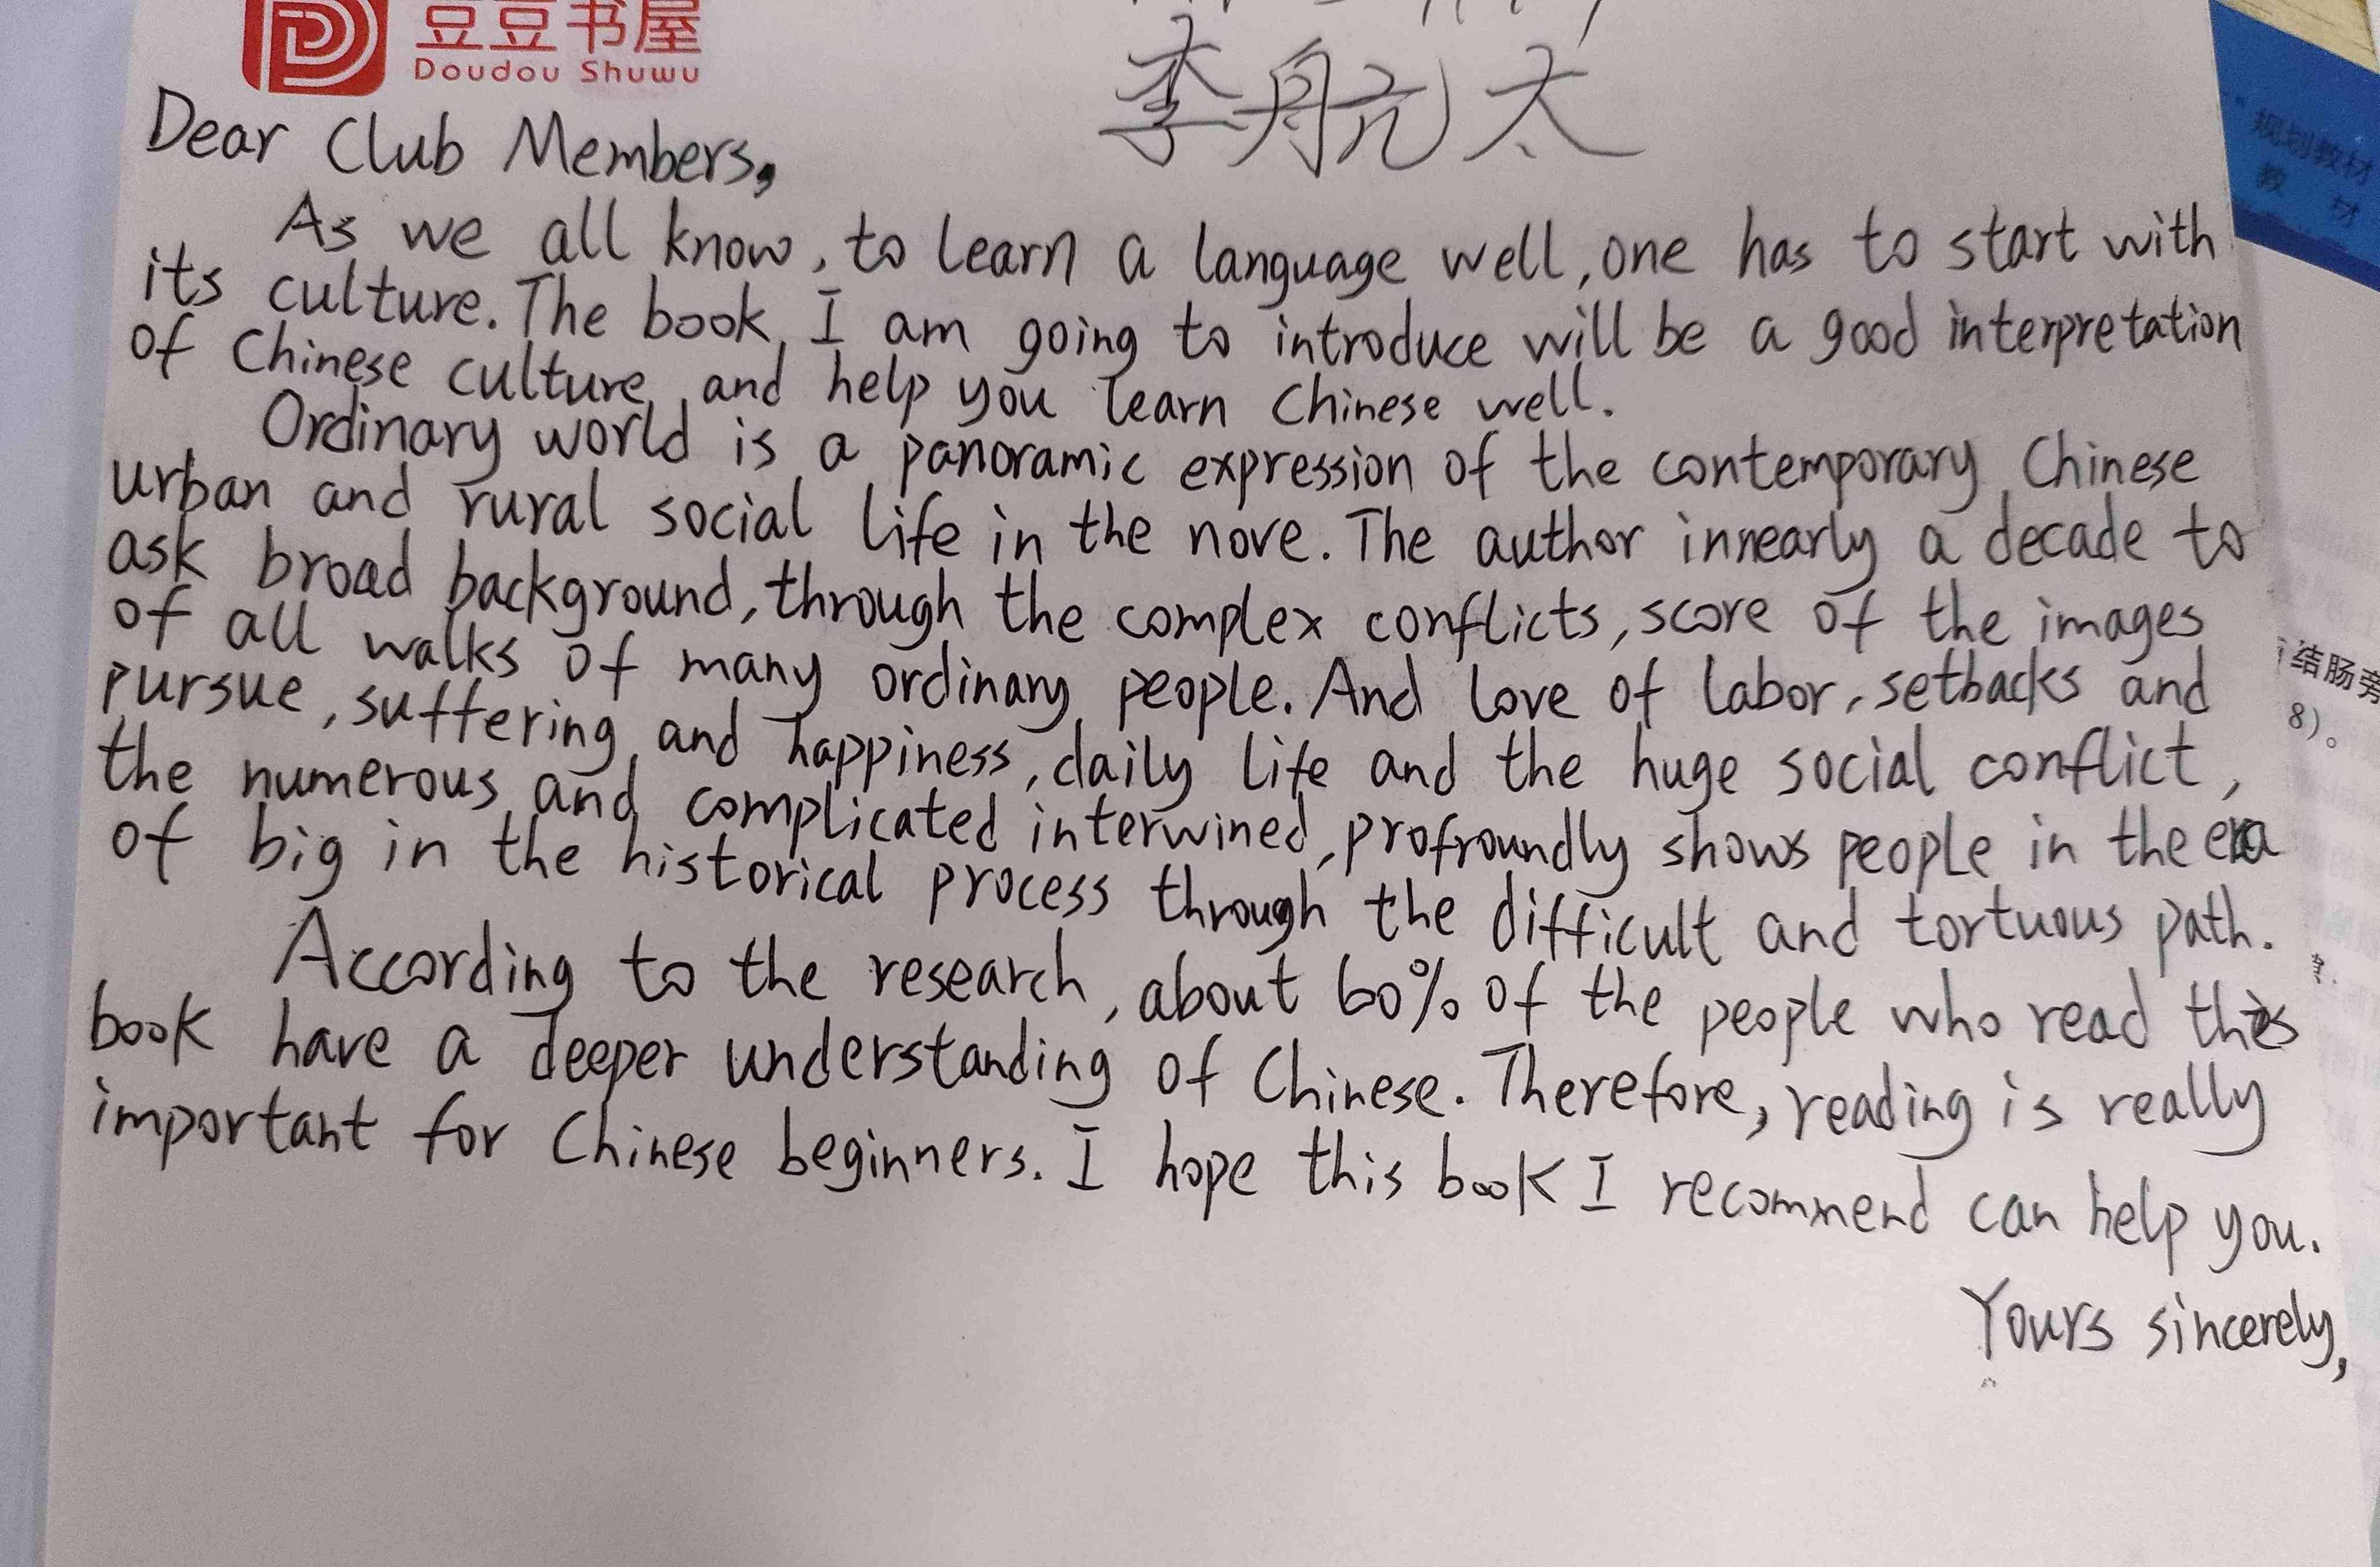 豆豆书屋
Doudou Shuwu
李航太
Dear Club Members,
As we all know, to learn a language well, one has to start with
its culture. The book I am going to introduce will be a good interpretation
of Chinese culture and help you learn Chinese well.
Ordinary world is a panoramic expression of the contemporary Chinese
urban and rural social life in the nove. The author innearly a decade to
ask broad background, through the complex conflicts, score of the images
of all walks of many ordinary people. And love of labor, setbacks and
pursue, suffering and happiness, daily life and the huge social conflict,
the numerous and complicated interwined, profroundly shows people in the era
of big in the historical process through the difficult and tortuous path.
According to the research, about 60% of the people who read this
book have a deeper understanding of Chinese. Therefore, reading is really
important for Chinese beginners. I hope this book I recommend can help you.
Yours sincerely,
规划教材
教 材
结肠旁
8)。